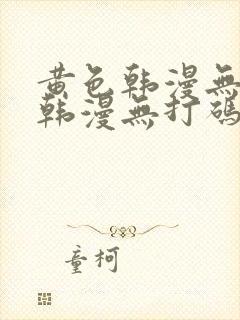 黄色韩漫無
韩漫無打碼
童柯